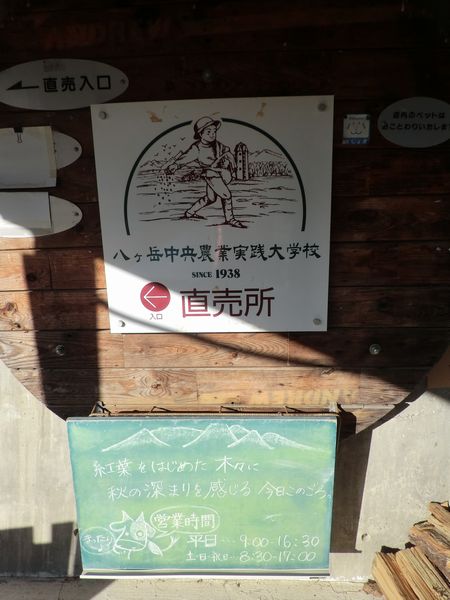 直売入口
店内のペットは
おことわりいたします
八ヶ岳中央農業実践大学校
SINCE 1938
入口
直売所
紅葉をはじめた 木々に
秋の深まりを感じる 今日このごろ。
営業時間
平日…9:00-16:30
土・日・祝日…8:30-17:00